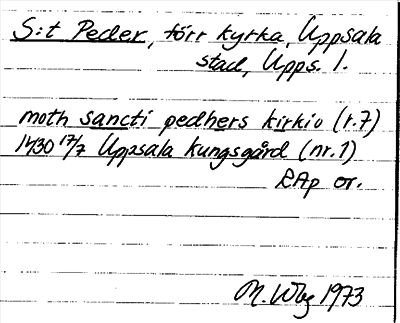 S:t Peder, förr kyrka, Uppsala
stad, Upps. l.
moth sancti pedhers kirkio (r.7)
1430 17/7 Uppsala kungsgård (nr.1)
RAp or.
M. Wbg 1973